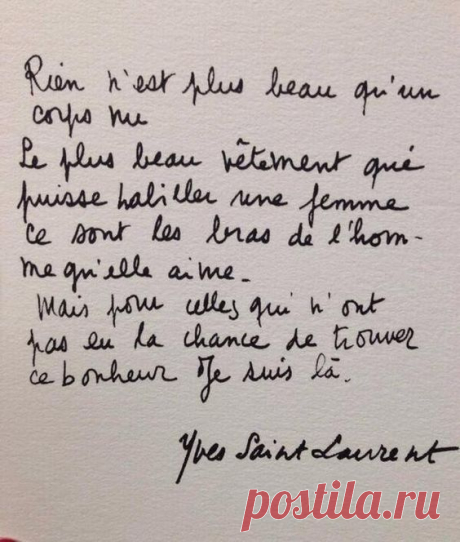 Rien n'est plus beau qu'un
corps nu
Le plus beau vêtement que
puisse habiller une femme
ce sont les bras de l'hom-
me qu'elle aime.
Mais pour celles qui n'ont
pas eu la chance de trouver
ce bonheur Je suis là.
Yves Saint Laurent
postila.ru